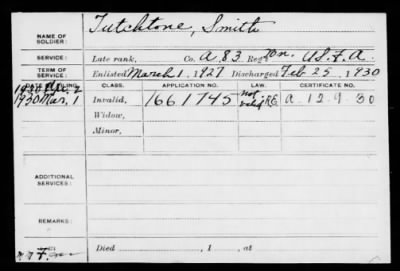 NAME OF SOLDIER: Tutchtone, Smith
SERVICE: Late rank, Co. A 83 Reg't Bn. US.F.A.
TERM OF SERVICE: Enlisted March 1, 1927 Discharged Feb 25, 1930
DATE OF FILING. CLASS. APPLICATION NO. LAW. CERTIFICATE NO.
1930 Mar. 1 Invalid, 1661745 not valid A-12-9-30
Widow,
Minor,
ADDITIONAL SERVICES:
REMARKS:
Died , 1 , at